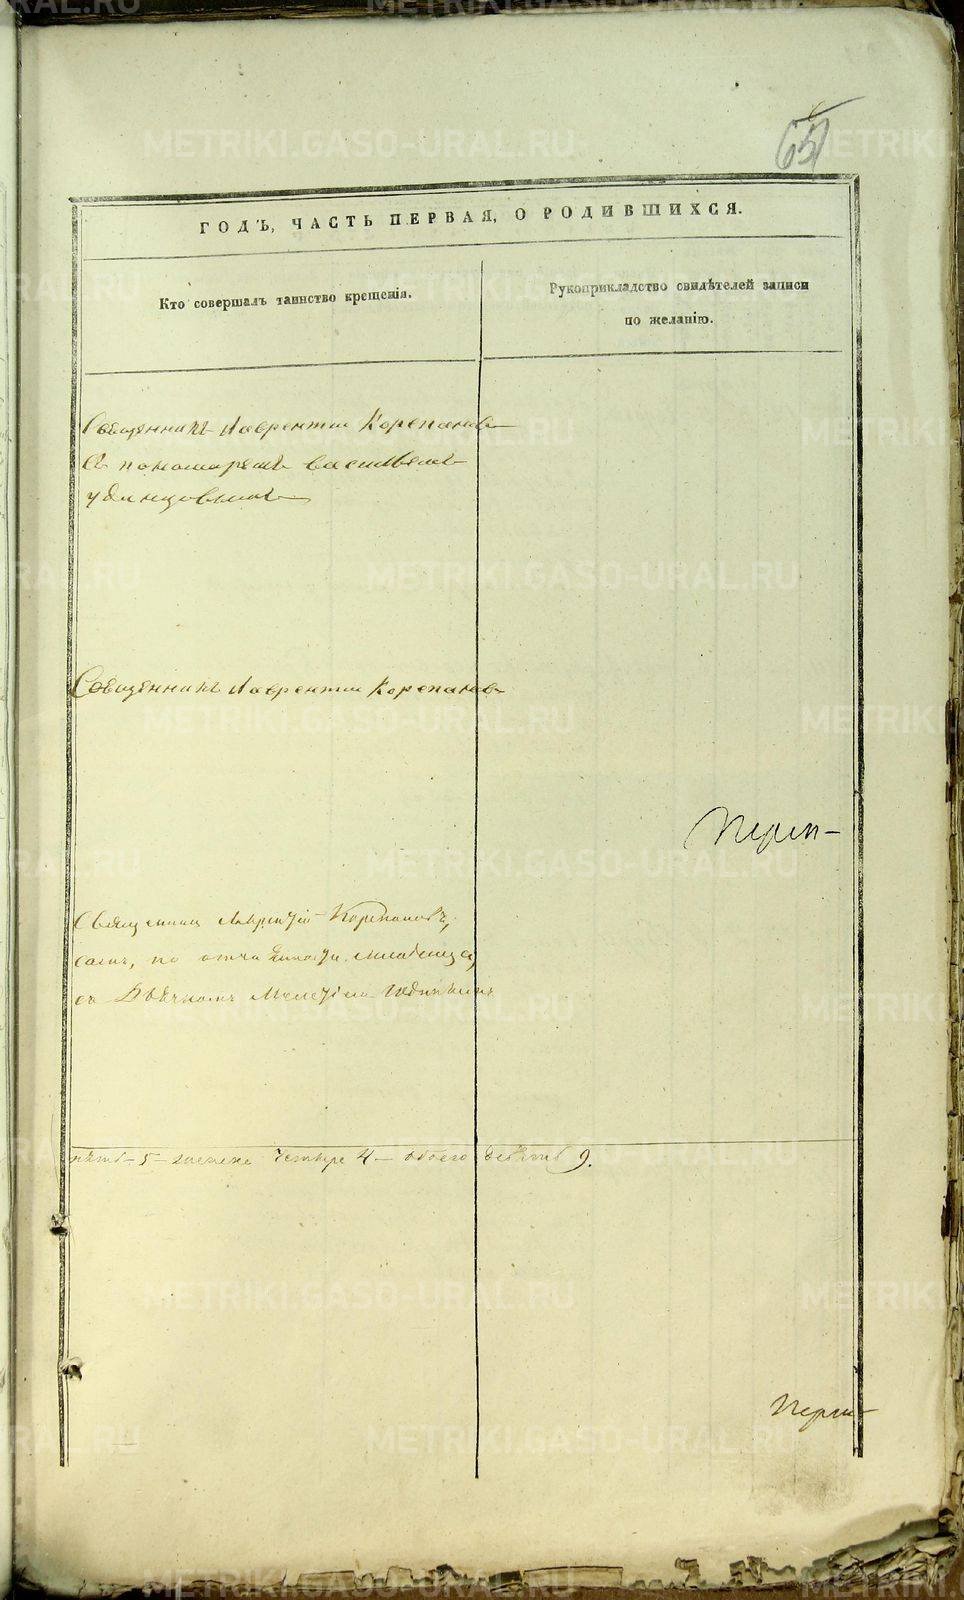 65
ГОДЪ, ЧАСТЬ ПЕРВАЯ, О РОДИВШИХСЯ.
Кто совершалъ таинство крещенія.
Рукоприкладство свидѣтелей записи
по желанію.
Священникъ Лаврентій Корепановъ
съ пономаремъ василіемъ
удинцовымъ
Священникъ Лаврентій Корепановъ
Перм-
Священникъ Лаврентій Корепановъ,
младенца,
съ Дьячкомъ
пять - 5 - женска четыре 4 - обоего девять 9.
Перм-
METRIKI.GASO-URAL.RU